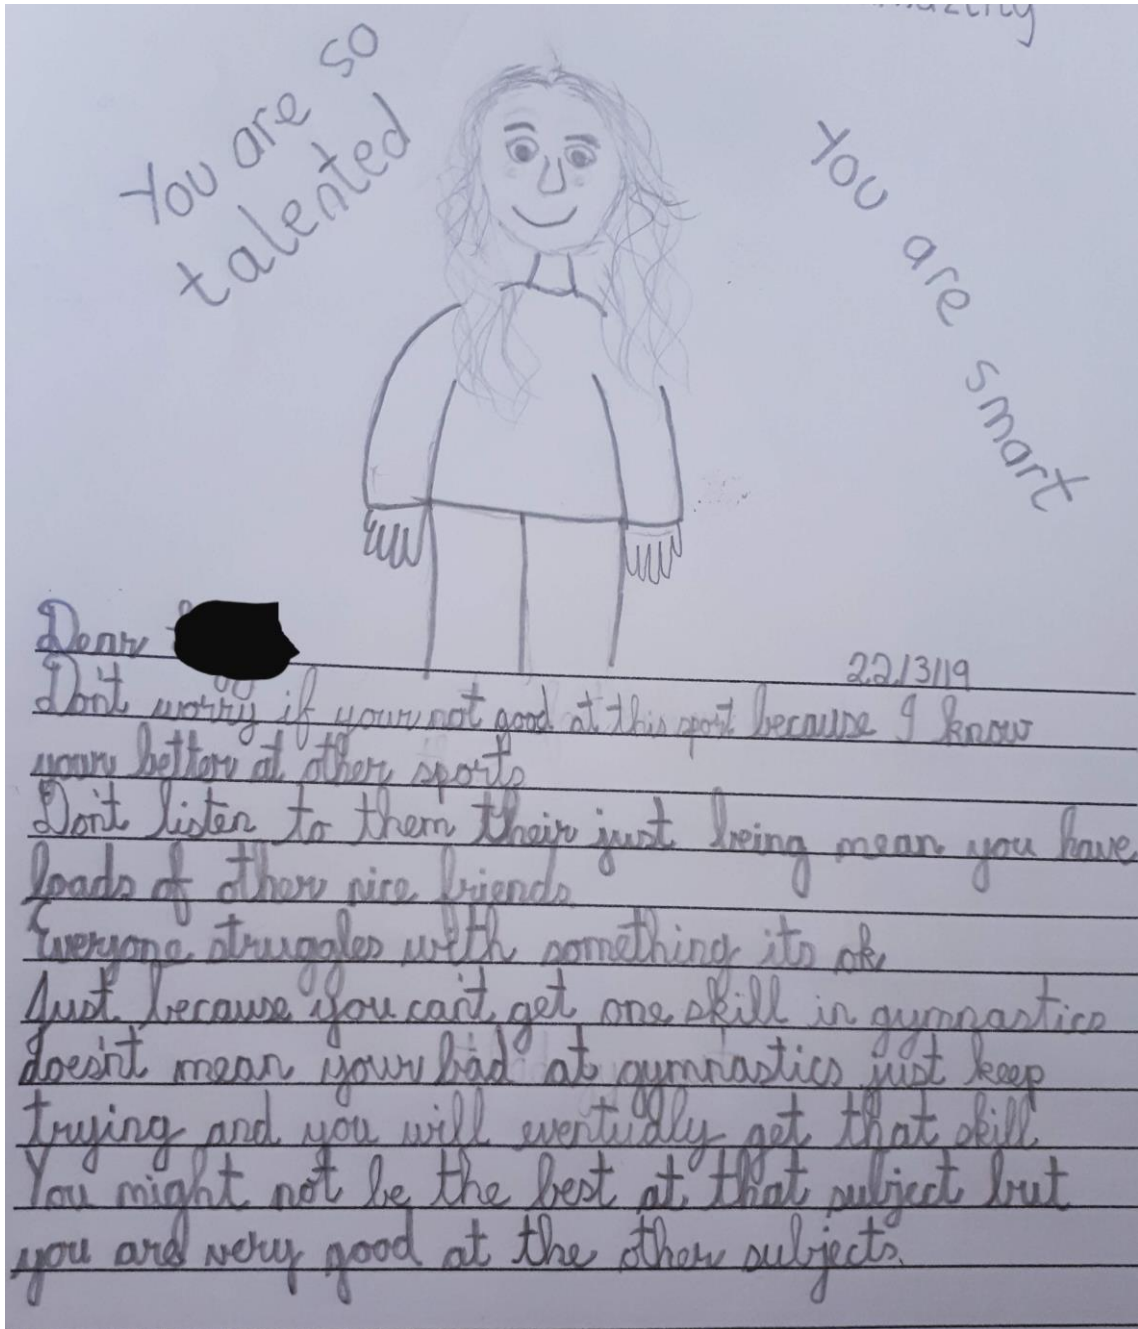 You are so
talented
You are smart
Dear
22/3/19
Don't worry if your not good at this sport because I know
your better at other sports
Don't listen to them their just being mean you have
loads of other nice friends
Everyone struggles with something its ok
Just because you can't get one skill in gymnastics
doesn't mean your bad at gymnastics just keep
trying and you will eventually get that skill
You might not be the best at that subject but
you are very good at the other subjects.